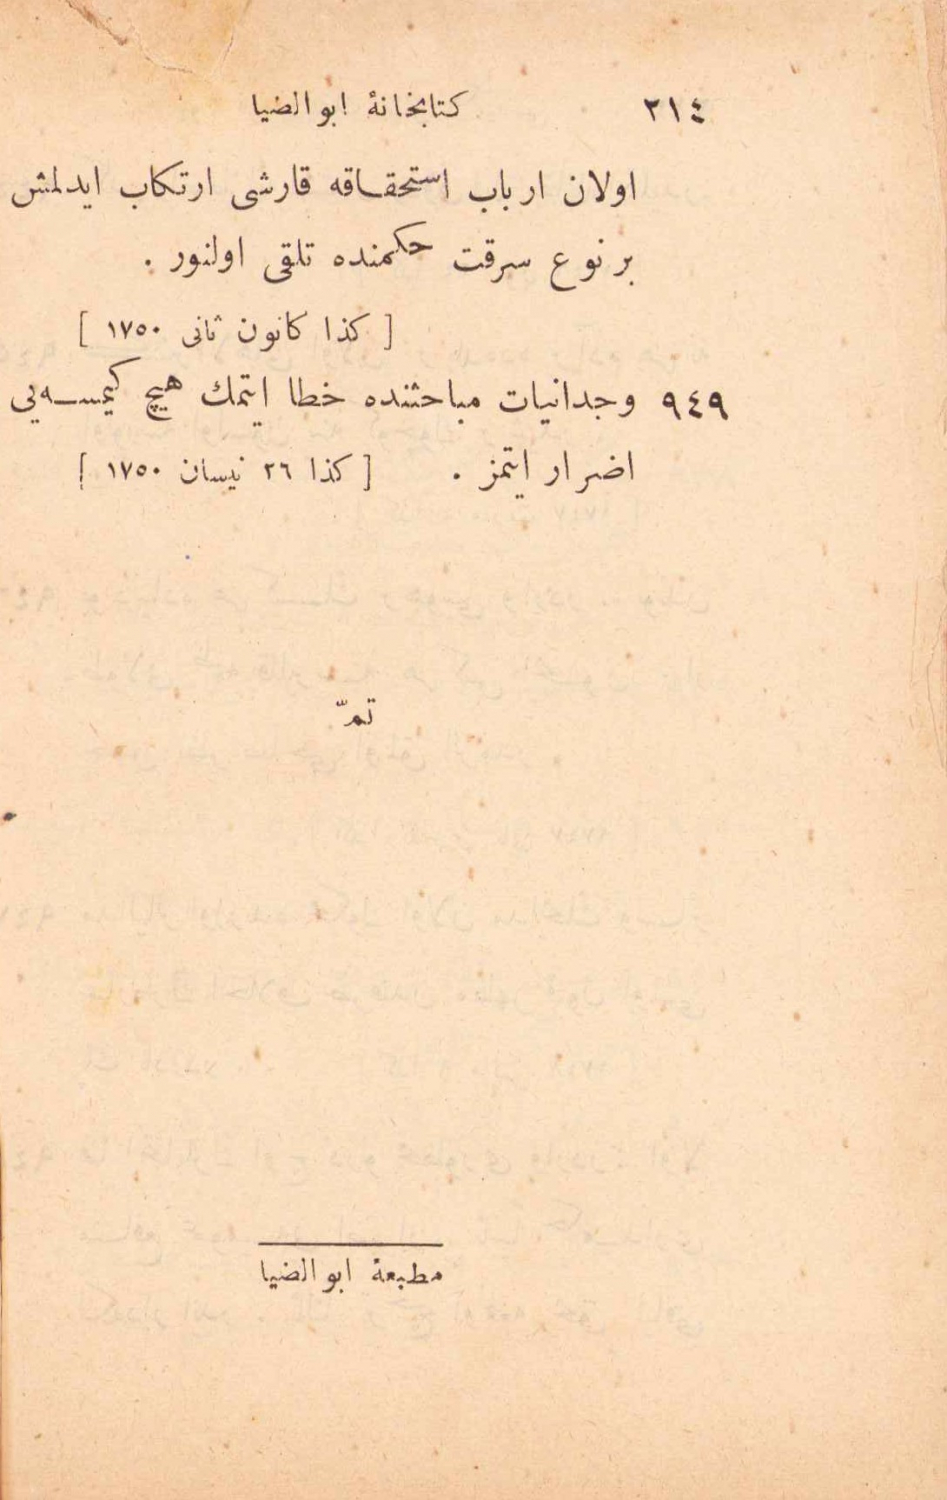 ٣١٤ كتابخانهٔ ابوالضيا
اولان ارباب استحقاقه قارشى ارتكاب ايدلمش
بر نوع سرقت حكمنده تلقى اولنور .
[ كذا كانون ثانى ١٧٥٠ ]
٩٤٩ وجدانيات مباحثنده خطا ايتمك هيچ كيمسه‌يى
اضرار ايتمز . [ كذا ٢٦ نيسان ١٧٥٠ ]
تمّ
مطبعهٔ ابوالضيا